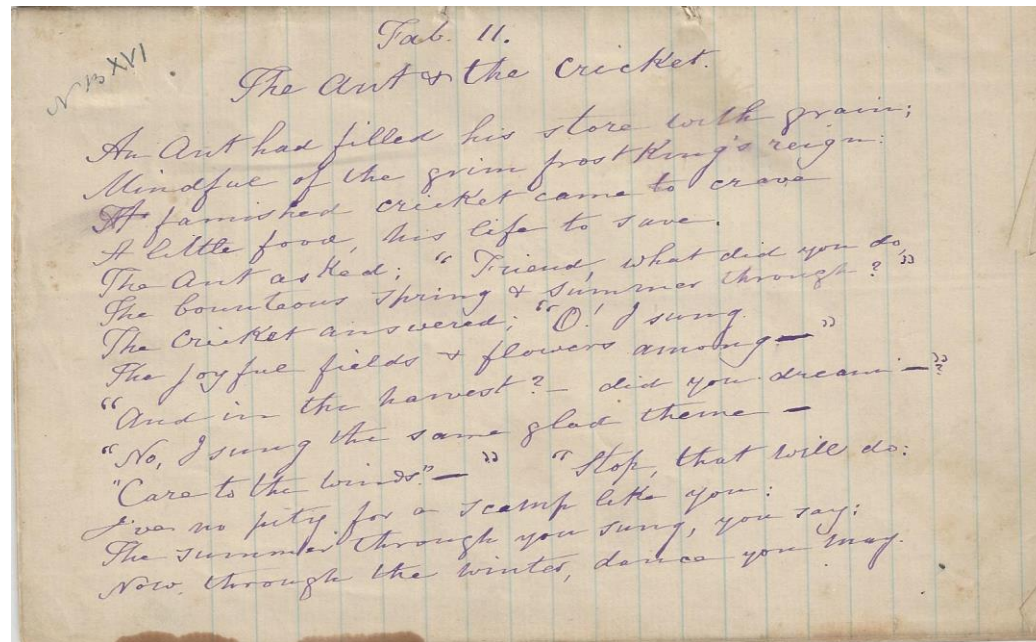 Fab. 11.
N 13 XVI
The Ant & the Cricket.
An Ant had filled his store with grain;
Mindful of the grim frost King's reign:
A famished cricket came to crave
A little food, his life to save.
The Ant asked; "Friend, what did you do,
The bounteous Spring & Summer through?"
The Cricket answered; "O! I sung
The joyful fields & flowers among—"
"And in the harvest?— did you dream—?"
"No, I sung the same glad theme—
"Care to the winds"—" "Stop, that will do:
I've no pity for a scamp like you:
The summer through you sung, you say:
Now, through the winter, dance you may.